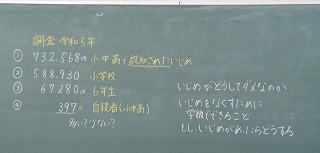 調査 令和5年
① 732.568件 小中高+認知されたいじめ
② 588.930 小学校
③ 67.280件 6年生
④ 397人 自殺者(小中高)
多い?少ない?
いじめがどうしてダメなのか
いじめをなくすために
学校でできること
もし、いじめがあったらどうする